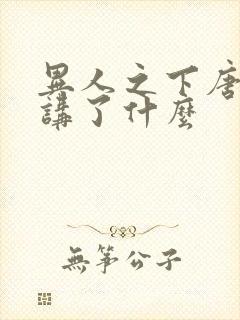 異人之下唐
講了什麼
無筝公子